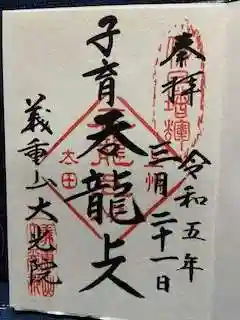 奉拝
令和五年
三月二十一日
子育呑龍上人
義重山大光院
太田